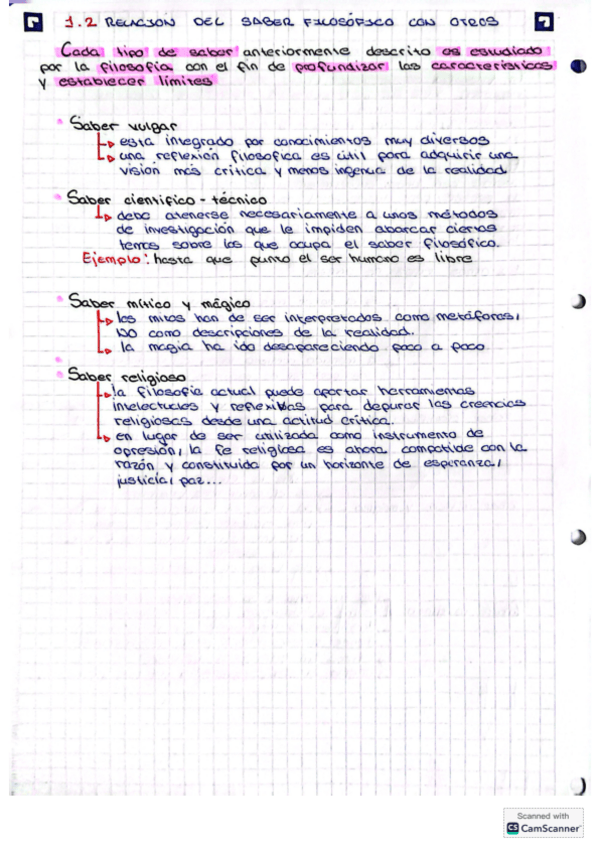 1.2 RELACION DEL SABER FILOSÓFICO CON OTROS
Cada tipo de saber anteriormente descrito es estudiado
por la filosofía con el fin de profundizar las características
y establecer límites
Saber vulgar
esta integrado por conocimientos muy diversos
una reflexión filosofica es útil para adquirir una
visión más crítica y menos ingenua de la realidad
Saber científico - técnico
debe atenerse necesariamente a unos métodos
de investigación que le impiden abarcar ciertos
temas sobre los que ocupa el saber filosófico.
Ejemplo: hasta que punto el ser humano es libre
Saber mítico y mágico
los mitos han de ser interpretados como metáforas,
NO como descripciones de la realidad.
la magia ha ido desapareciendo poco a poco
Saber religioso
la filosofía actual puede aportar herramientas
intelectuales y reflexivas para depurar las creencias
religiosas desde una actitud crítica.
en lugar de ser utilizada como instrumento de
opresión, la fe religiosa es ahora compatible con la
razón y constituida por un horizonte de esperanza,
justicia, paz...
Scanned with
CS CamScanner